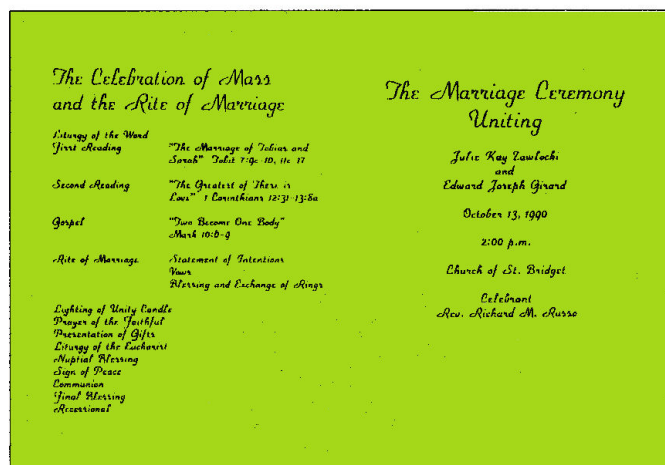 The Celebration of Mass
and the Rite of Marriage
Liturgy of the Word
First Reading "The Marriage of Tobias and
Sarah" Tobit 7:9c-10, 11c-17
Second Reading "The Greatest of These is
Love" 1 Corinthians 12:31-13:8a
Gospel "Two Become One Body"
Mark 10:6-9
Rite of Marriage Statement of Intentions
Vows
Blessing and Exchange of Rings
Lighting of Unity Candle
Prayer of the Faithful
Presentation of Gifts
Liturgy of the Eucharist
Nuptial Blessing
Sign of Peace
Communion
Final Blessing
Recessional
The Marriage Ceremony
Uniting
Julie Kay Zawlocki
and
Edward Joseph Girard
October 13, 1990
2:00 p.m.
Church of St. Bridget
Celebrant
Rev. Richard M. Russo